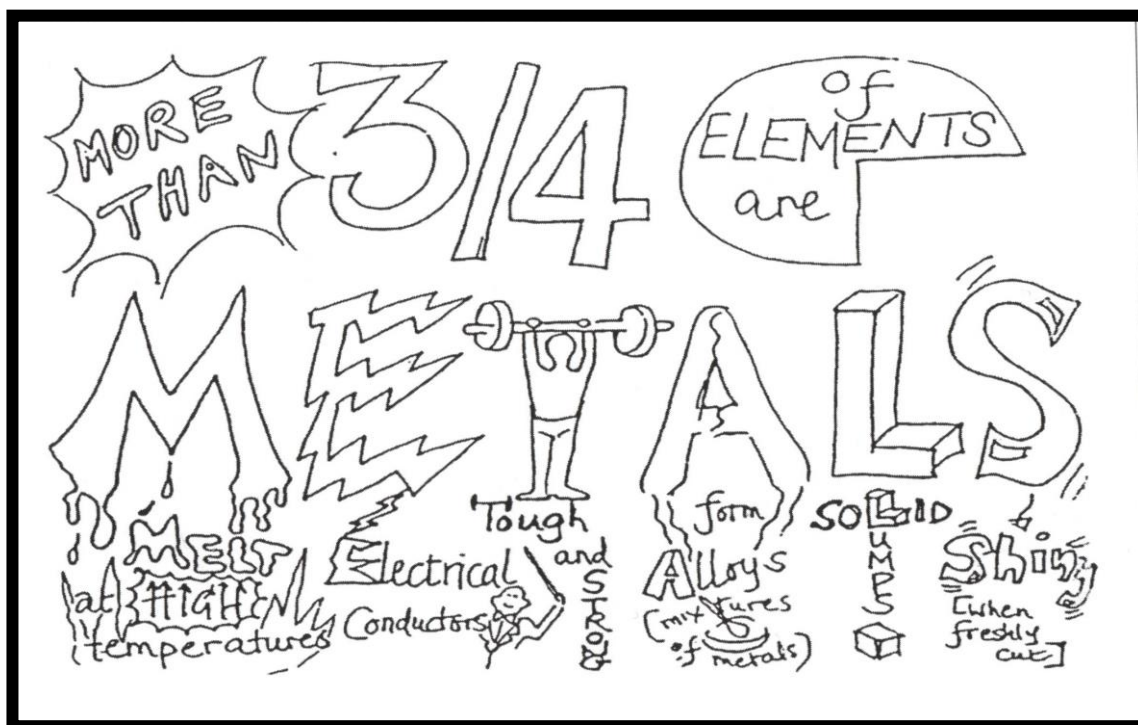 MORE THAN 3/4 of ELEMENTS are
METALS
MELT at HIGH temperatures
Electrical Conductors
Tough and STRONG
form Alloys (mixtures of metals)
SOLID LUMPS
Shiny [when freshly cut]